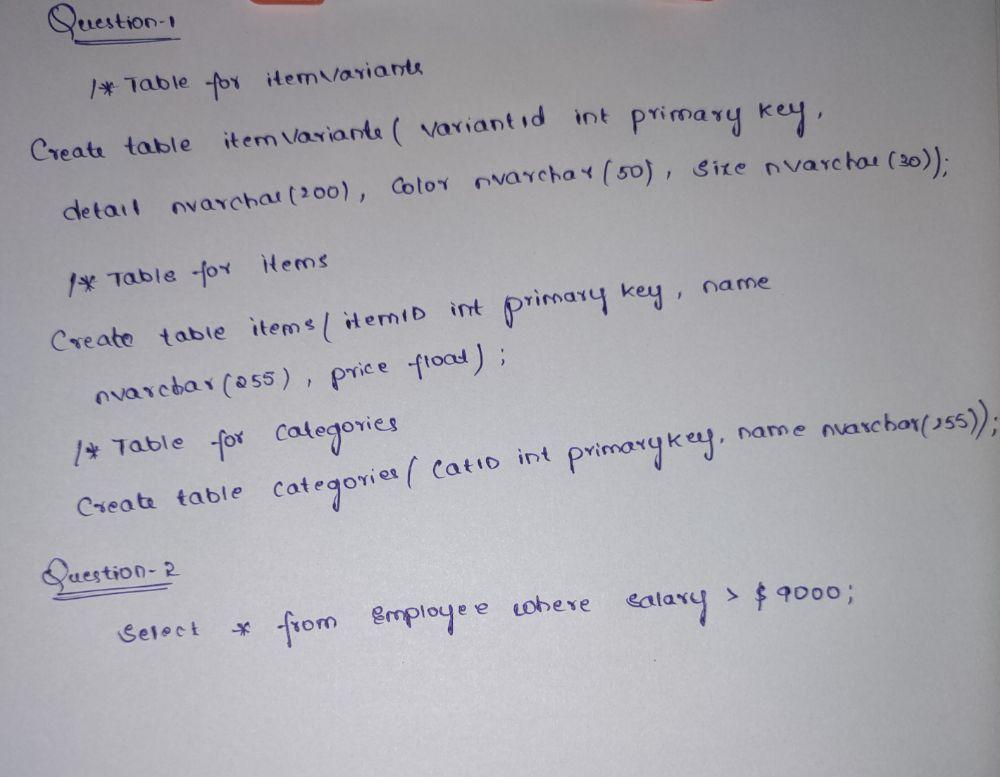 Question-1
/* Table for itemvariants
Create table itemvariants ( variantid int primary key,
detail nvarchar(200), Color nvarchar(50), size nvarchar(30));
/* Table for items
Create table items( itemID int primary key, name
nvarchar(255), price float);
/* Table for categories
Create table categories( CatID int primary key, name nvarchar(255));
Question-2
Select * from Employee where salary > $9000;